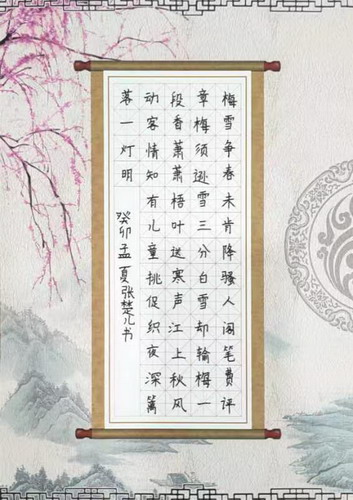 梅雪争春未肯降骚人阁笔费评
章梅须逊雪三分白雪却输梅一
段香萧萧梧叶送寒声江上秋风
动客情知有儿童挑促织夜深篱
落一灯明
癸卯孟夏张楚儿书